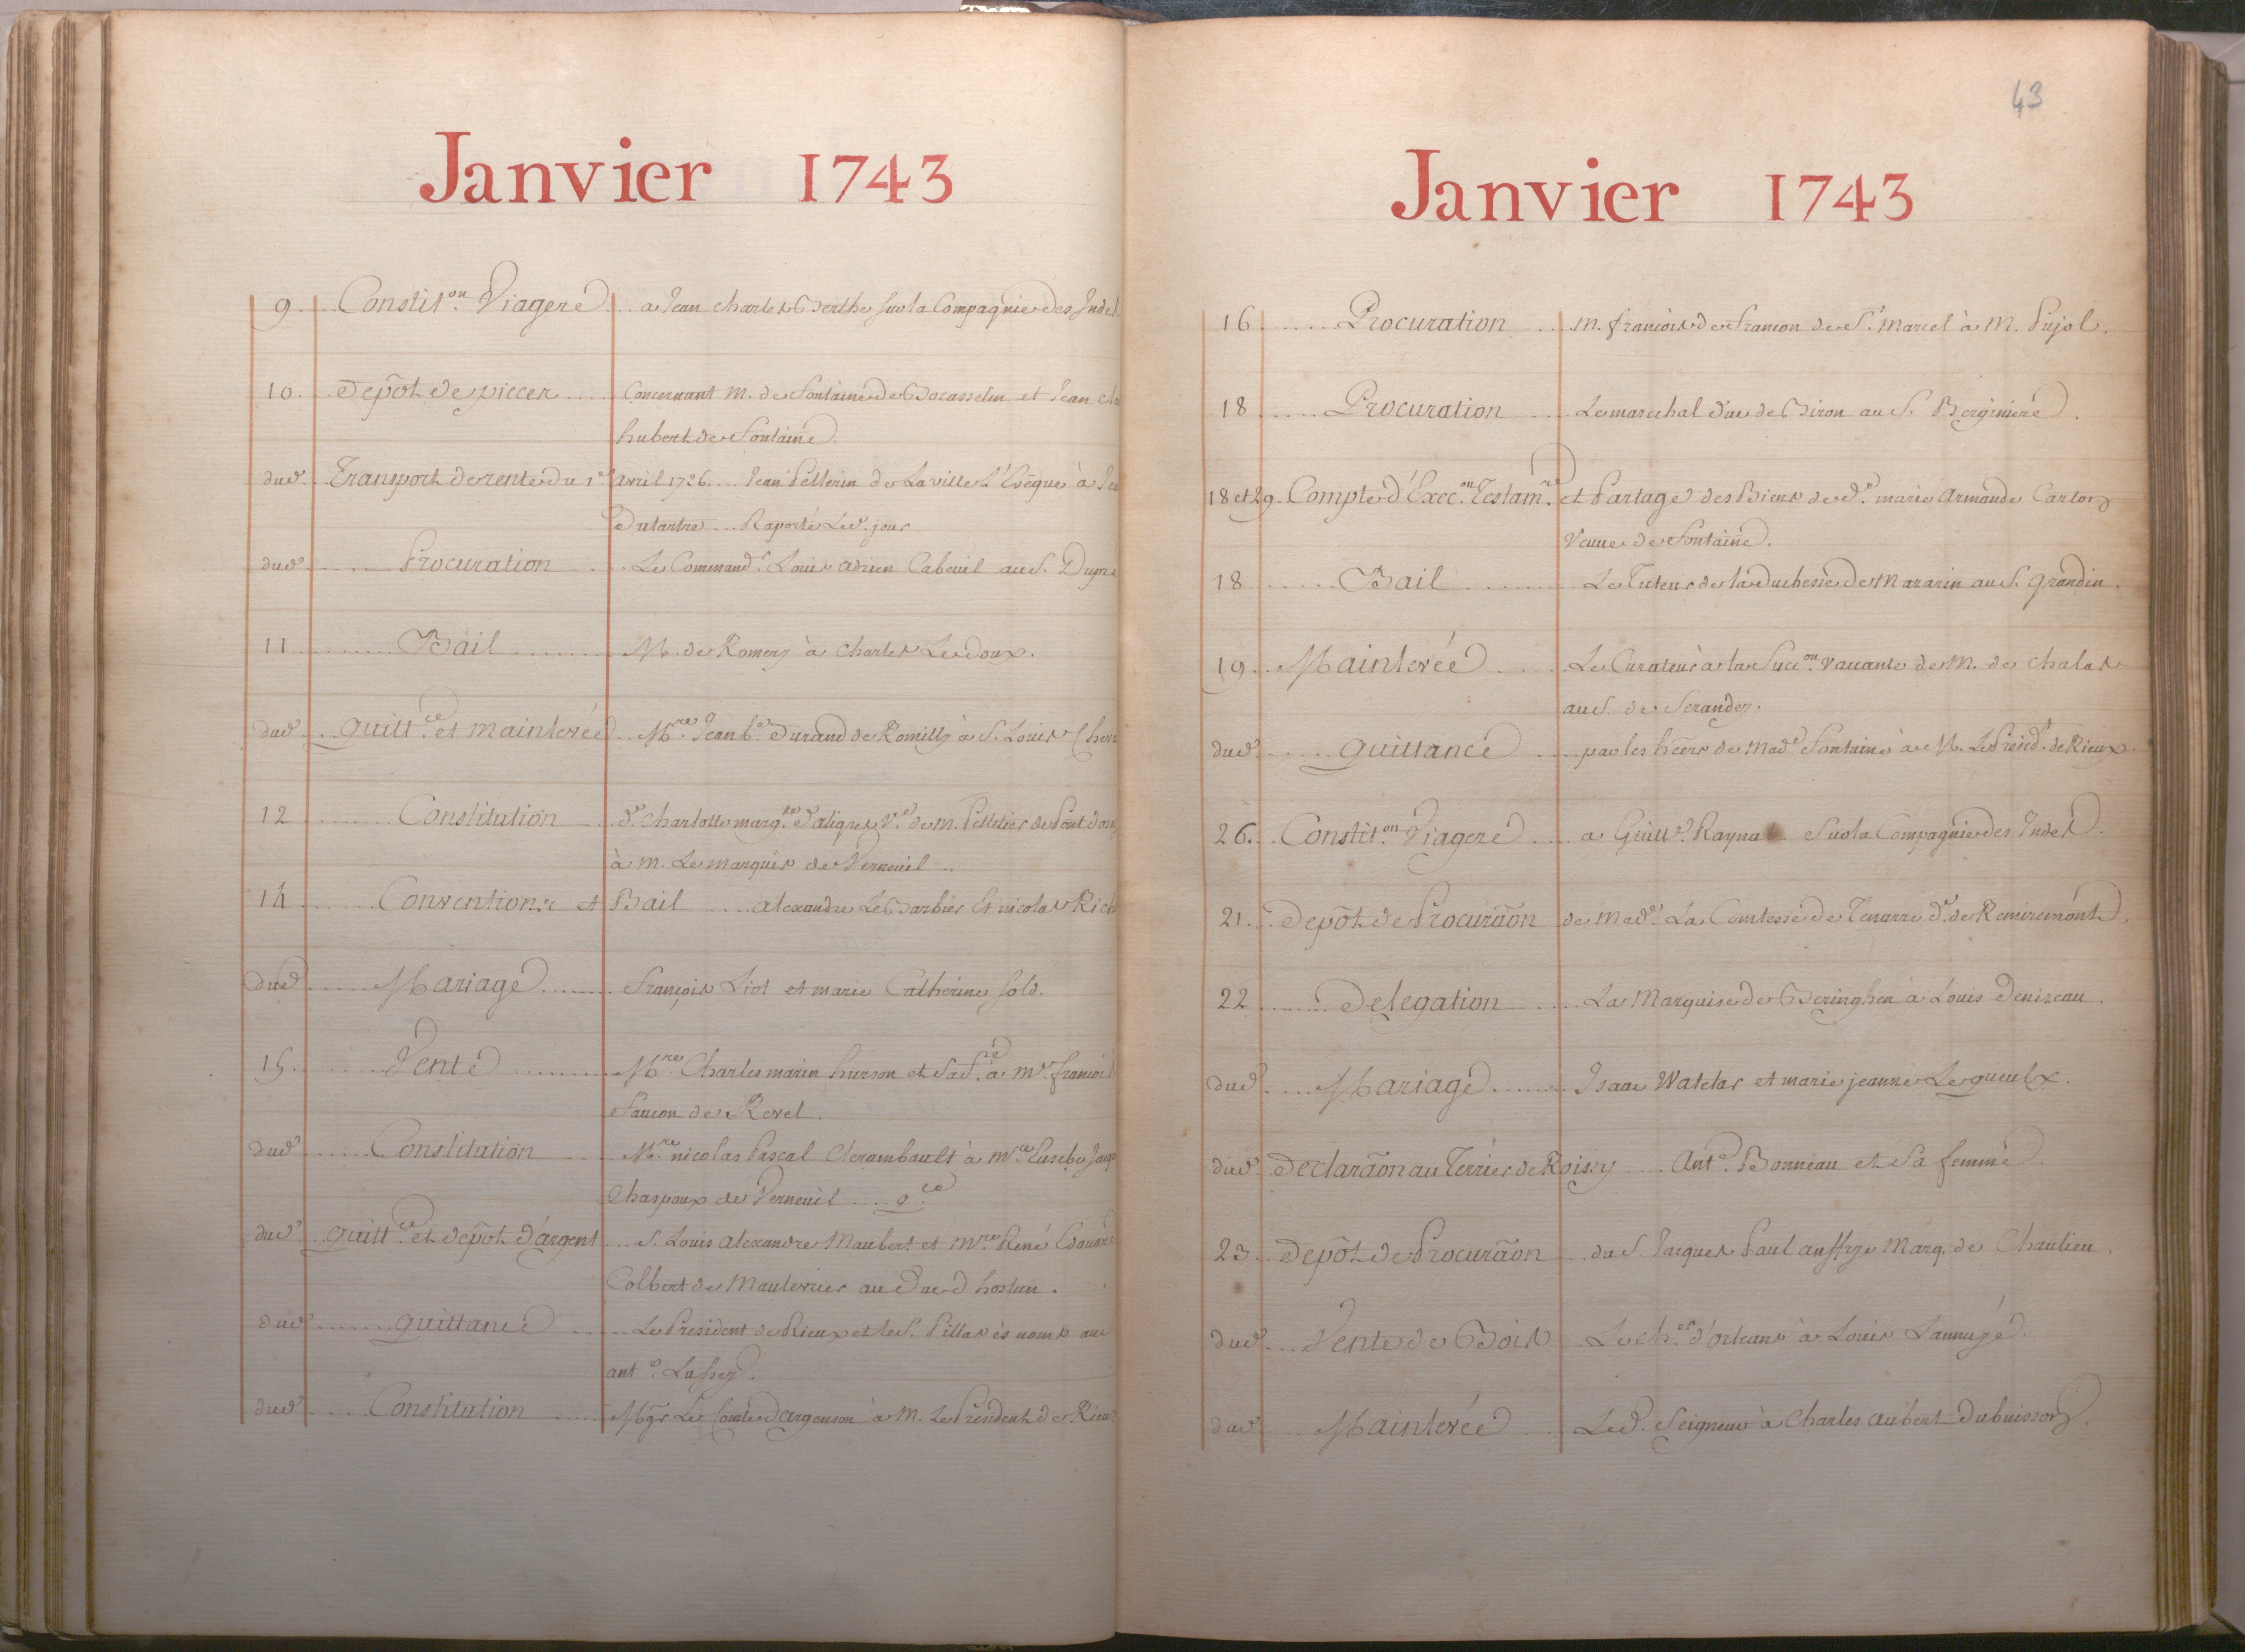 Janvier 1743
9 Constit.on Viagere a Jean Charles Berthe sur la Compagnie des Indes
10 Depôt de pieces Concernant M. de Fontaine de Bocasselin et Jean
hubert de Fontaine
dud. Transport de rente du 1er avril 1726 Jean Pellerin de La ville L'Evêque à
Dutartre Raporté Led. jour
dud. Procuration Le Command.r Louis adrien Cabeuil au S.
11 Bail M. de Romery à Charles Ledoux.
dud. quitt.ce et mainlevée M.re Jean b.e Durand de Romilly à S. Louis
12 Constitution d.e Charlotte marg.te d'aligre V.e de M. Pelletier de
à M. Le marquis de Verneuil
14 Conventions et Bail alexandre Le Barbier et nicolas
dud. Mariage François Liot et marie Catherine sold.
15 Vente M.re Charles marin hurson et sa f.e à M.re françois
Faucon de Revel.
dud. Constitution M.re nicolas Pascal Clerambault à M.re Eusebe
Chaspoux de Verneuil q.ce
dud. quitt.ce et depôt d'argent S. Louis alexandre Maubert et M.re René Edouard
Colbert de Maulevrier au Duc d'hostun.
dud. quittance Le President de Rieux et le S. Pillas ès noms
ant.e
dud. Constitution Mgr Le Comte d'argenson à M. Le President de Rieux
43
Janvier 1743
16 Procuration M. françois de francon de S.t Marcel à M. Pujol.
18 Procuration Le marechal duc de Biron au S. Berginiere.
18 et 29 Compte d'Exec.on Testam.re et Partage des Biens de d.e marie Armande Carton
Veuve de Fontaine.
18 Bail Le Tuteur de la Duchesse de Mazarin au S. grandin.
19 Mainlevée Le Curateur à la Succ.on vacante de M. de Chalas
au S. de
dud. quittance par les hêers de Mad.e Fontaine à M. Le Presid.t de Rieux
26. Constit.on Viagere a Guill.e Raynal Sur la Compagnie des Indes.
21. Depôt de Procurãon de Mad.e La Comtesse de Tenarre d.e de Remiremont.
22 Delegation La Marquise de Beringhen à Louis Denizeau.
dud. Mariage Isaac Watelar et marie jeanne Legueulx.
dud. Declarãon au Terrier de Roissy Ant.e Bonneau et sa femme
23 Depôt de Procurãon du S. Jacques Paul auffrye Marq. de Chaulieu.
dud. Vente de Bois Le Ch.er d'orleans à Louis
dud. Mainlevée Led. Seigneur à Charles aubert Dubuisson.